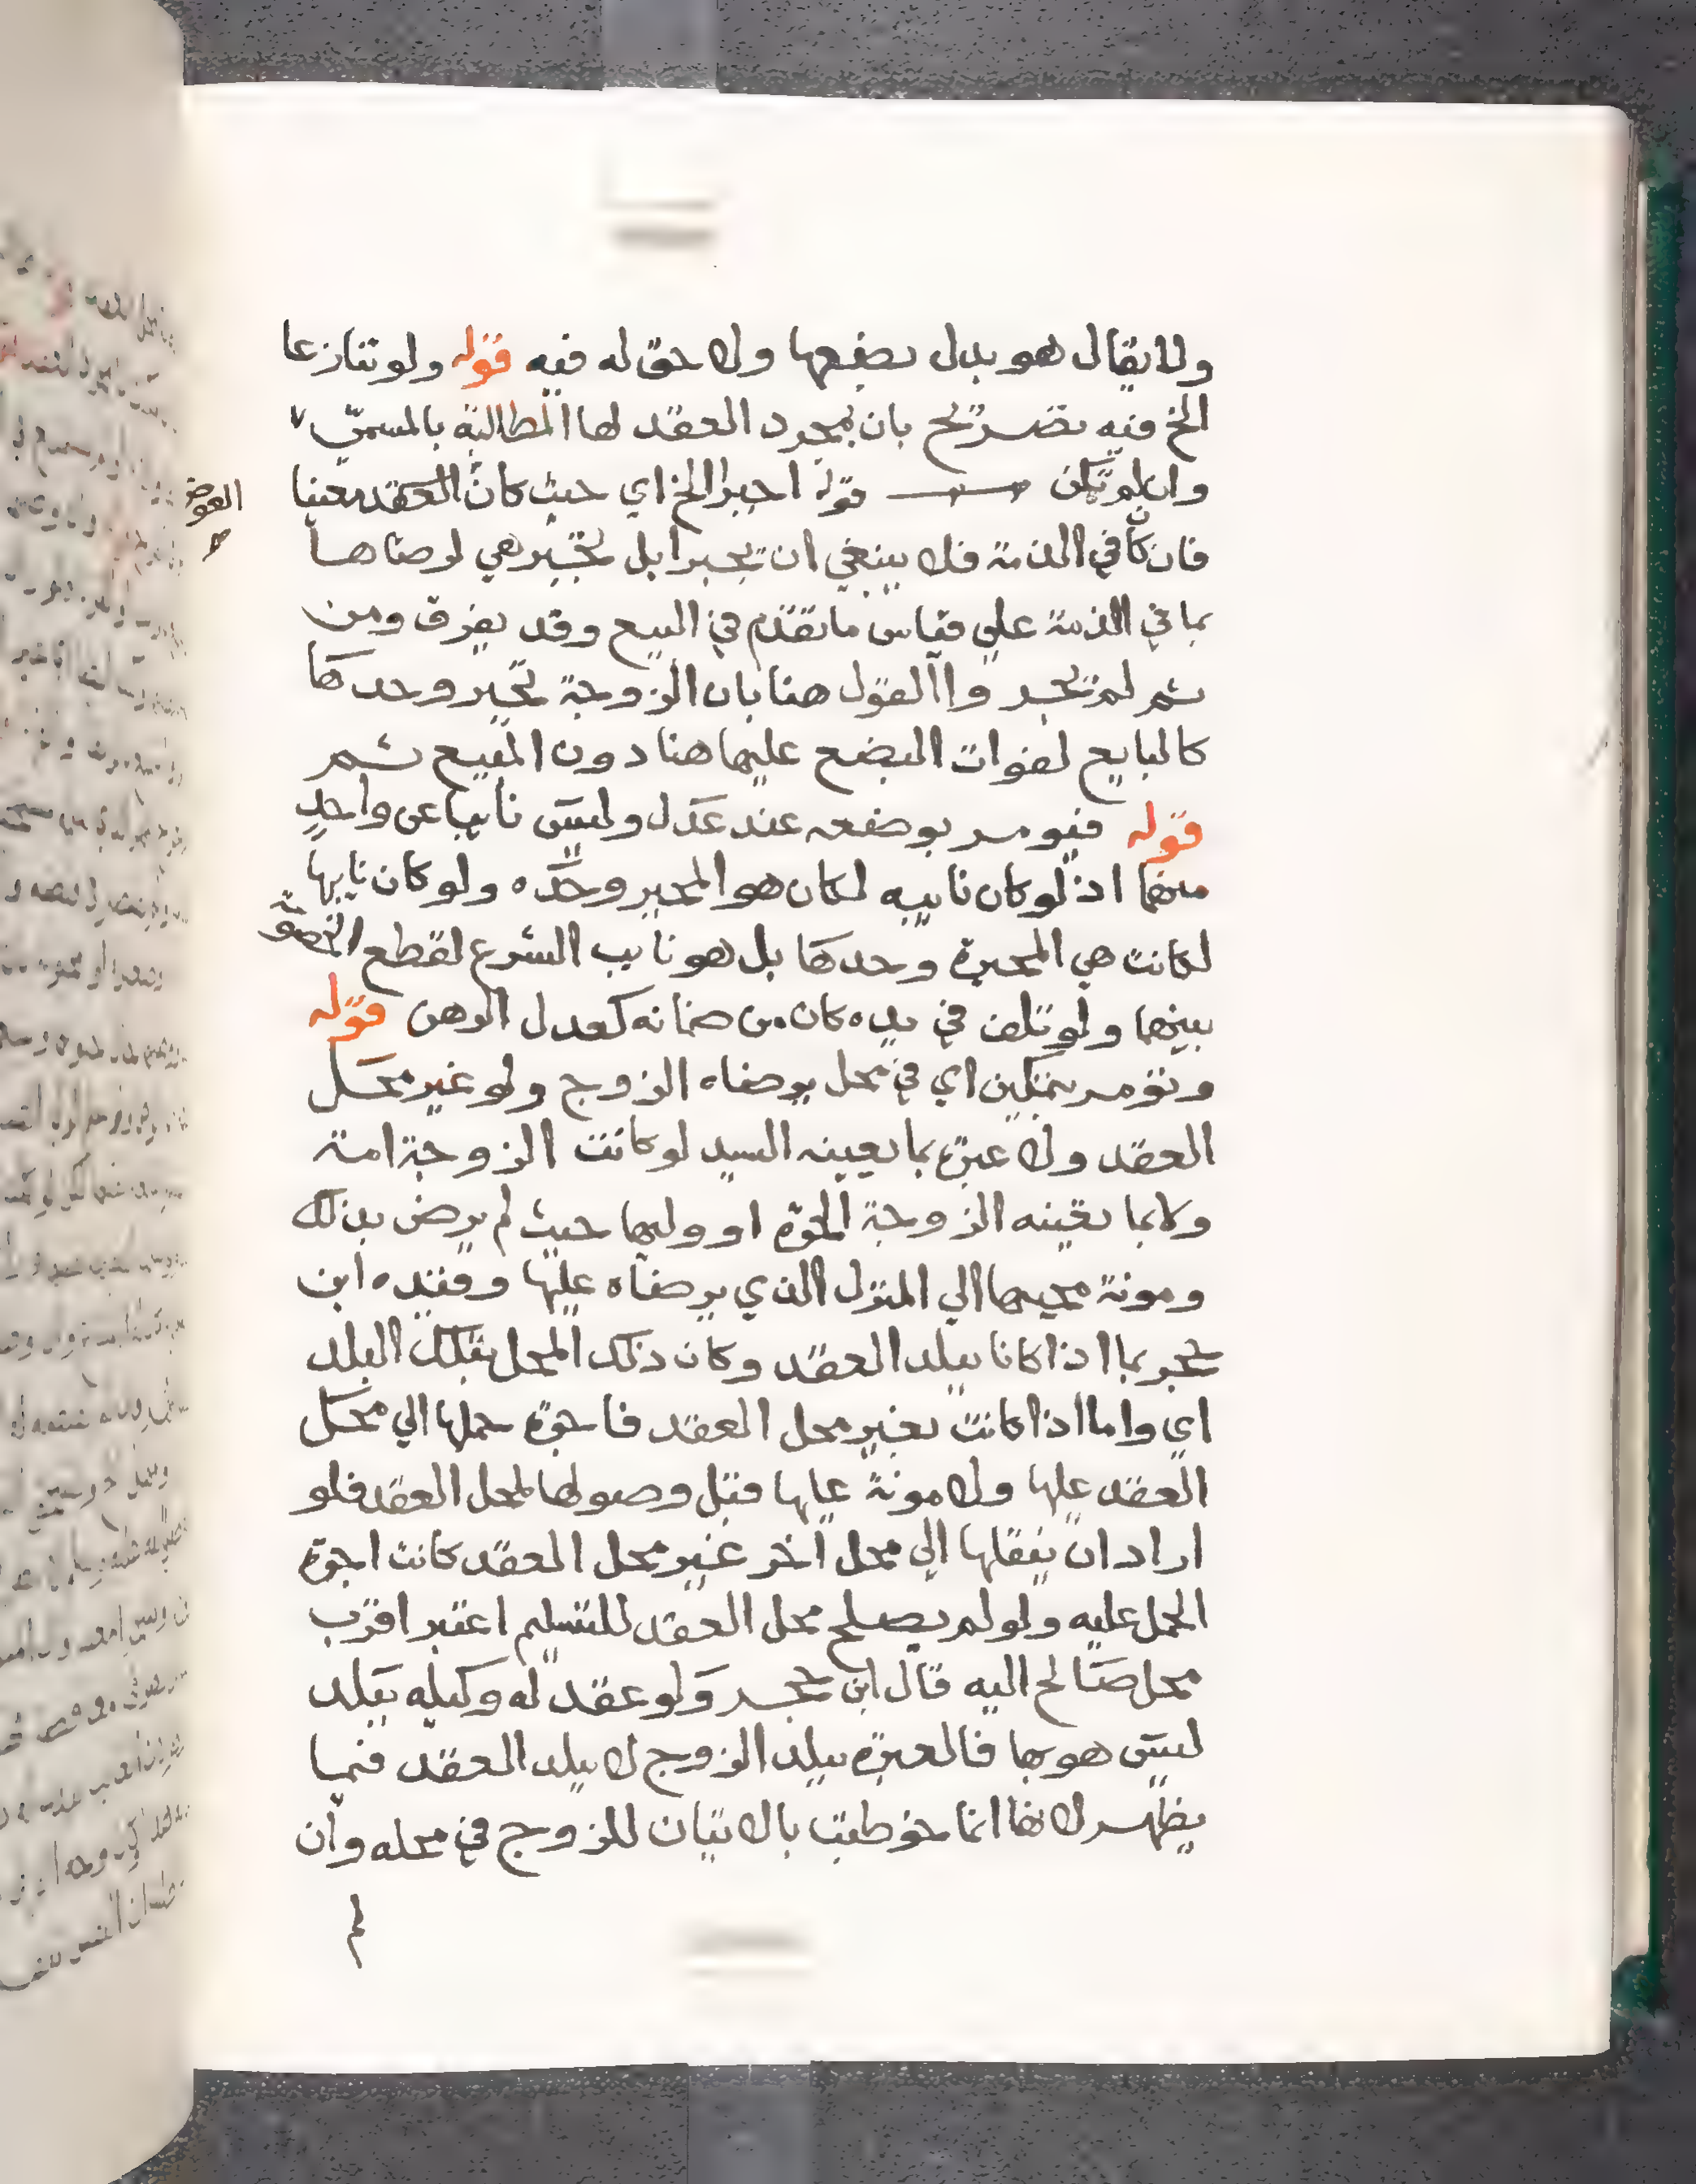 ولا يقال هو بدل بضعها ولا حق له فيه قوله ولو تنازعا
الخ فيه تصريح بان بمجرد العقد لها المطالبة بالمسمى
وان لم تمكن قوله اجبرا الخ اي حيث كان العقد معينا
العوض
فان كان في الذمة فلا ينبغي ان يجبرا بل تجبر هي لرضاها
بما في الذمة على قياس ما تقدم في البيع وقد يفرق ومن
ثم لم يجبر والقول هنا بان الزوجة تجبر وحدها
كالبايع لفوات البضع عليها هنا دون المبيع ثم
قوله فيومر بوضعه عند عدل وليس نايبا عن واحد
منهما اذ لو كان نايبه لكان هو المجبر وحده ولو كان نايبها
لكانت هي المجبرة وحدها بل هو نايب الشرع لقطع الخصومة
بينهما ولو تلف في يده كان من ضمانه كعدل الرهن قوله
وتومر بتمكين اي في محل يرضاه الزوج ولو غير محل
العقد ولا عبرة بما يعينه السيد لو كانت الزوجة امة
ولا بما تعينه الزوجة الحرة او وليها حيث لم يرض بذلك
ومونة مجيئها الي المنزل الذي يرضاه عليها وقيده ابن
حجر بما اذا كانا ببلد العقد وكان ذلك المحل بتلك البلد
اي واما اذا كانت بغير محل العقد فاجرة حملها الي محل
العقد عليها ولا مونة عليها قبل وصولها لمحل العقد فلو
اراد ان ينقلها الي محل اخر غير محل العقد كانت اجرة
الحمل عليه ولو لم يصلح محل العقد للتسليم اعتبر اقرب
محل صالح اليه قال ابن حجر ولو عقد له وكيله ببلد
ليس هو بها فالعبرة ببلد الزوج لا ببلد العقد فيما
يظهر لانها انما خوطبت بالاتيان للزوج في محله وان
لم